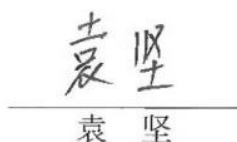 袁坚
袁 坚